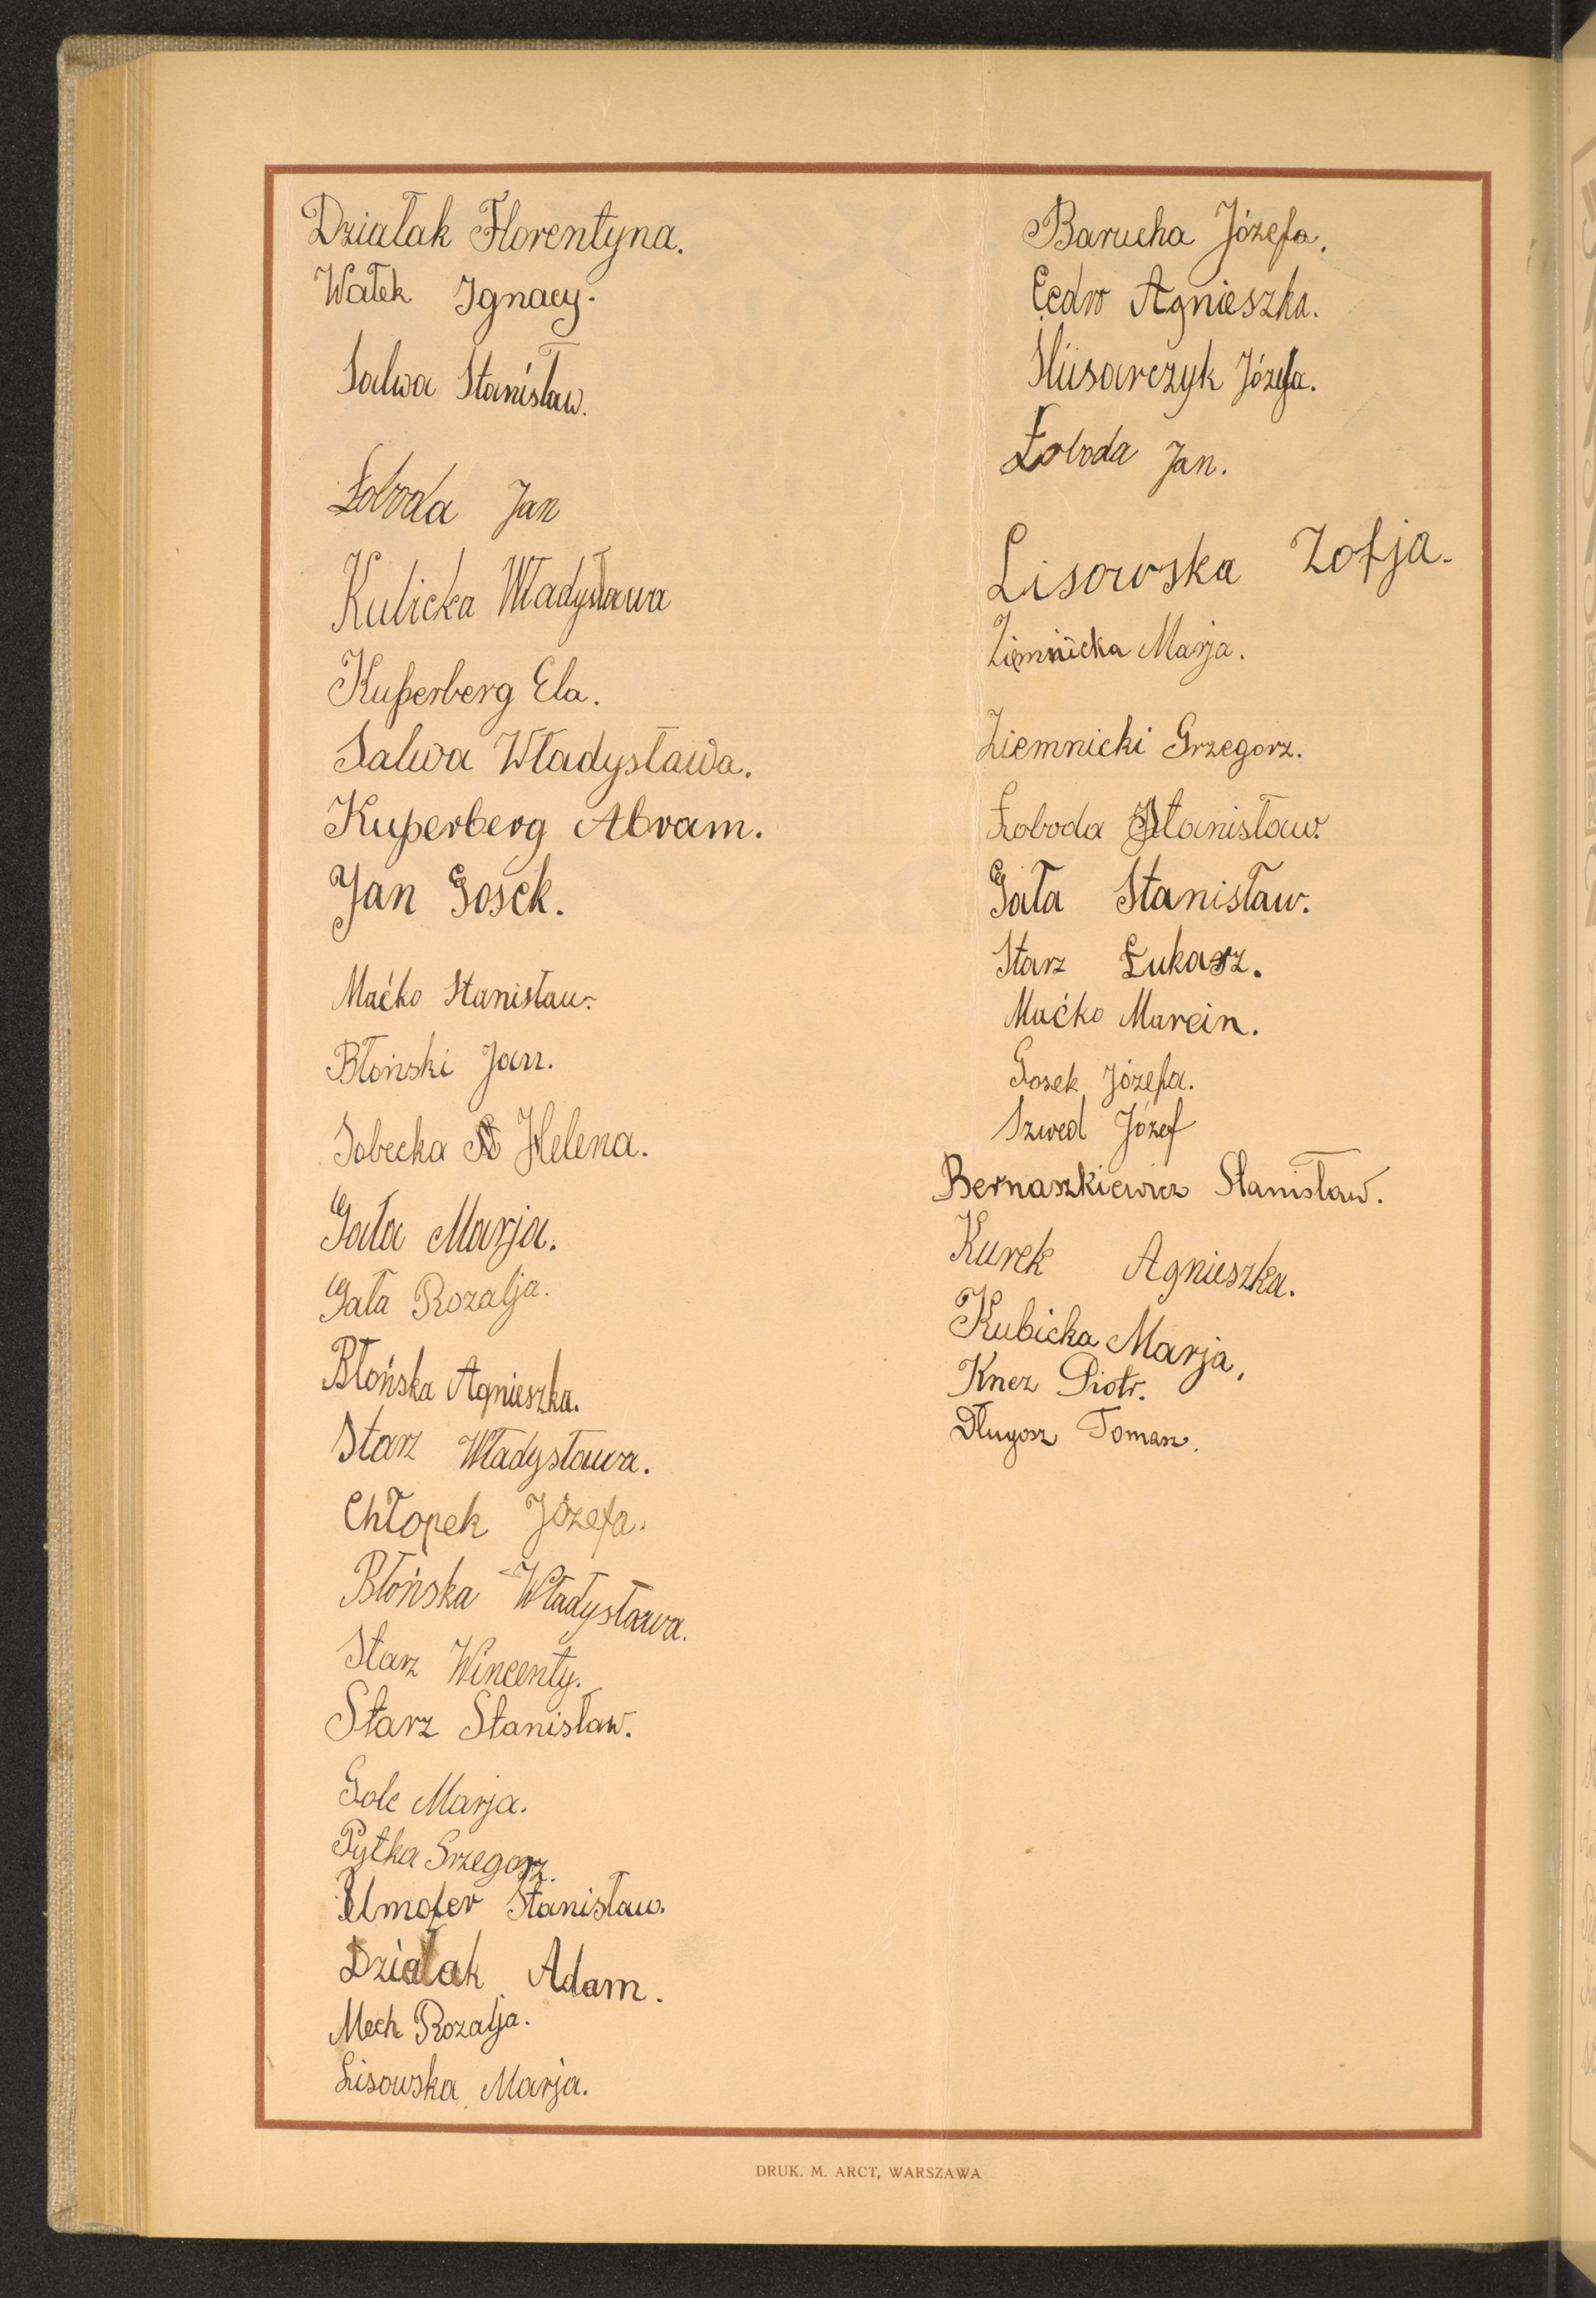 Działak Florentyna.
Wałek Ignacy.
Salwa Stanisław.
Łoboda Jan
Kubicka Władysława
Kuperberg Ela.
Salwa Władysława.
Kuperberg Abram.
Jan Gosek.
Maćko Stanisław.
Błoński Jan.
Sobecka Helena.
Gała Marja.
Gała Rozalja.
Błońska Agnieszka.
Starz Władysława.
Chłopek Józefa.
Błońska Władysława.
Starz Wincenty.
Starz Stanisław.
Gole Marja.
Pytka Grzegorz.
Stanisław.
Działak Adam.
Mech Rozalja.
Lisowska Marja.
Barucha Józefa.
Cedro Agnieszka.
Ślusarczyk Józefa.
Łoboda Jan.
Lisowska Zofja.
Ziemnicka Marja.
Ziemnicki Grzegorz.
Łoboda Stanisław.
Gała Stanisław.
Starz Łukasz.
Maćko Marcin.
Gosek Józefa.
Szwed Józef
Bernaszkiewicz Stanisław.
Kurek Agnieszka.
Kubicka Marja,
Knez Piotr.
Długosz Tomasz.
DRUK. M. ARCT, WARSZAWA